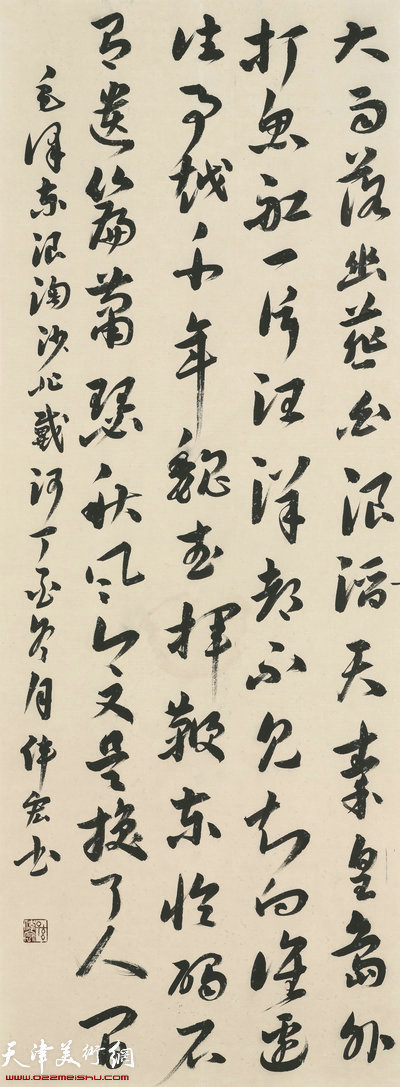 大雨落幽燕白浪滔天秦皇島外
打魚船一片汪洋都不见知向谁邊
往事越千年魏武揮鞭东临碣石
有遗篇萧瑟秋风今又是换了人间
毛泽东浪淘沙北戴河丁酉冬月伟宏书
天津美術網
www.022meishu.com